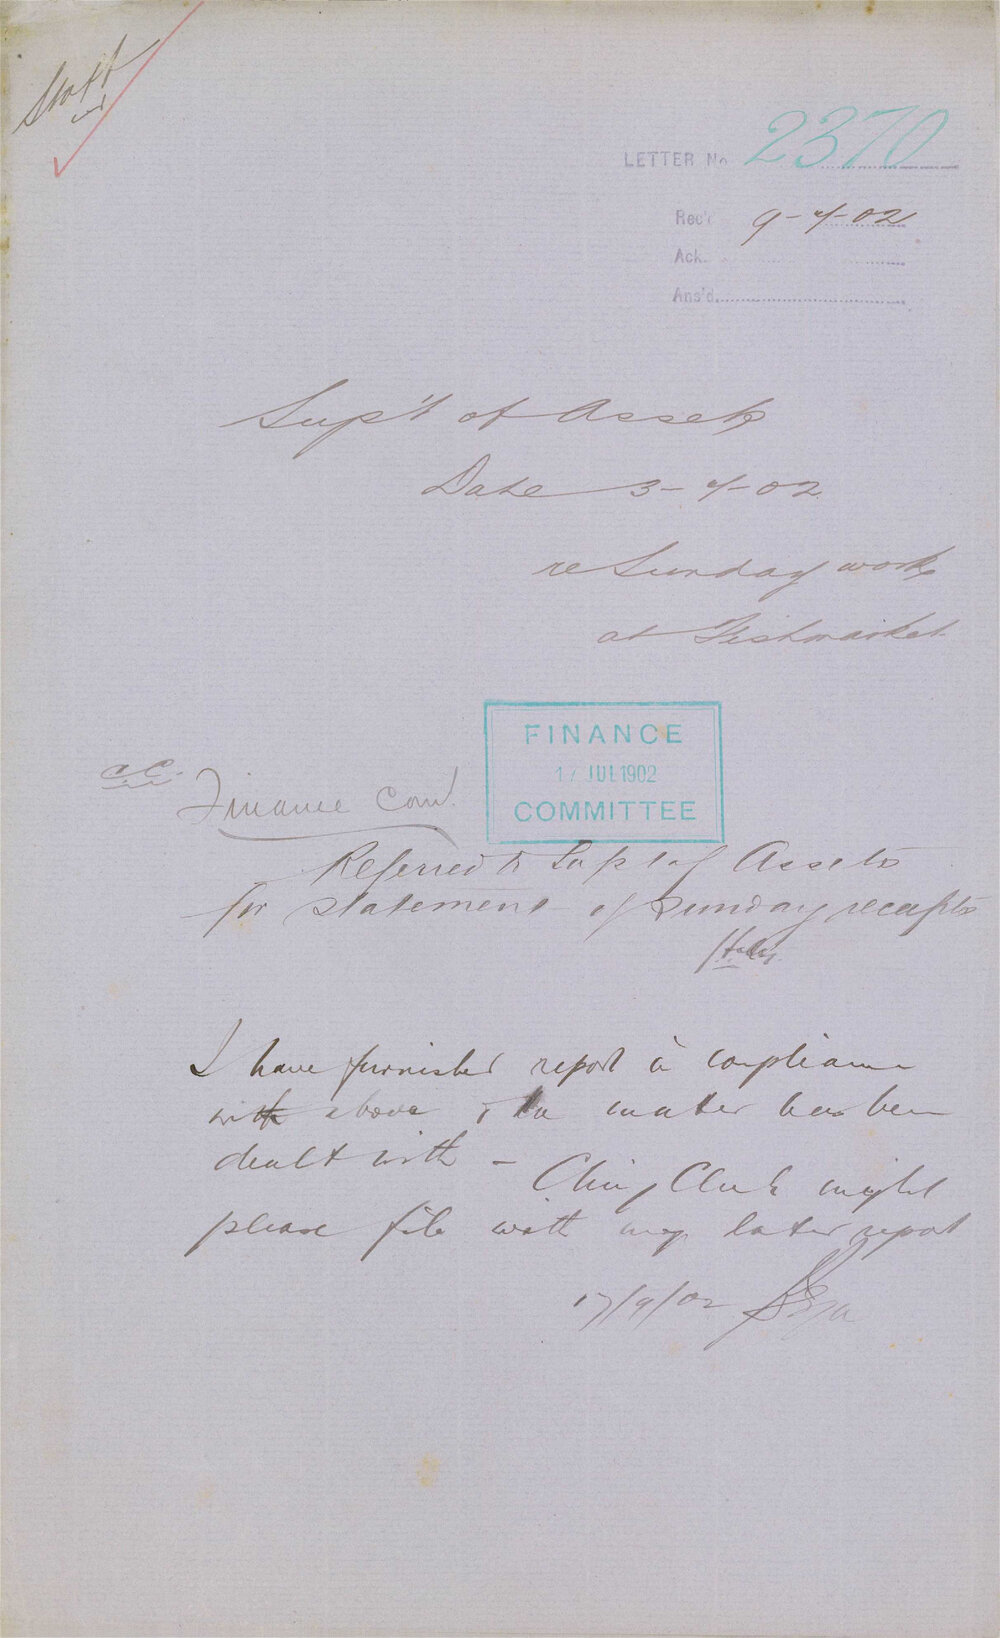 Staff
LETTER No 2370
Rec'd 9-7-02
Ack.
Ans'd.
Sup't of Assets
Date 3-7-02
re Sunday work
at Fishmarket
C.C.
Finance Com.
FINANCE
17 JUL 1902
COMMITTEE
Referred to Supt of Assets
for statement of Sunday receipts
I have furnished report in compliance
with above & the matter has been
dealt with - Chief Clerk might
please file with my later report
17/9/02